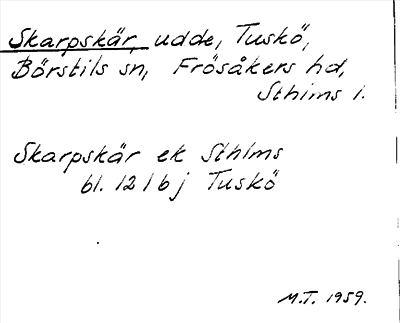 Skarpskär, udde, Tuskö,
Börstils sn, Frösåkers hd,
Sthlms l.
Skarpskär ek Sthlms
bl. 121 b j Tuskö
M.T. 1959.